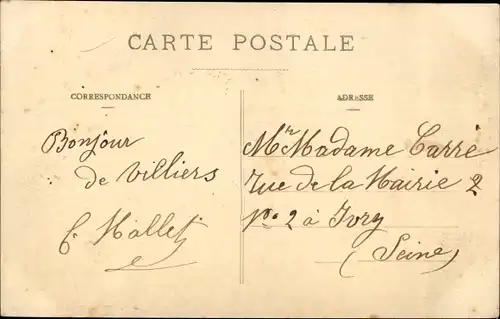 CARTE POSTALE
CORRESPONDANCE
ADRESSE
Bonjour
de Villiers
E. Hallet
Mr Madame Carré
rue de la Mairie 2
No 2 à Ivry
(Seine)